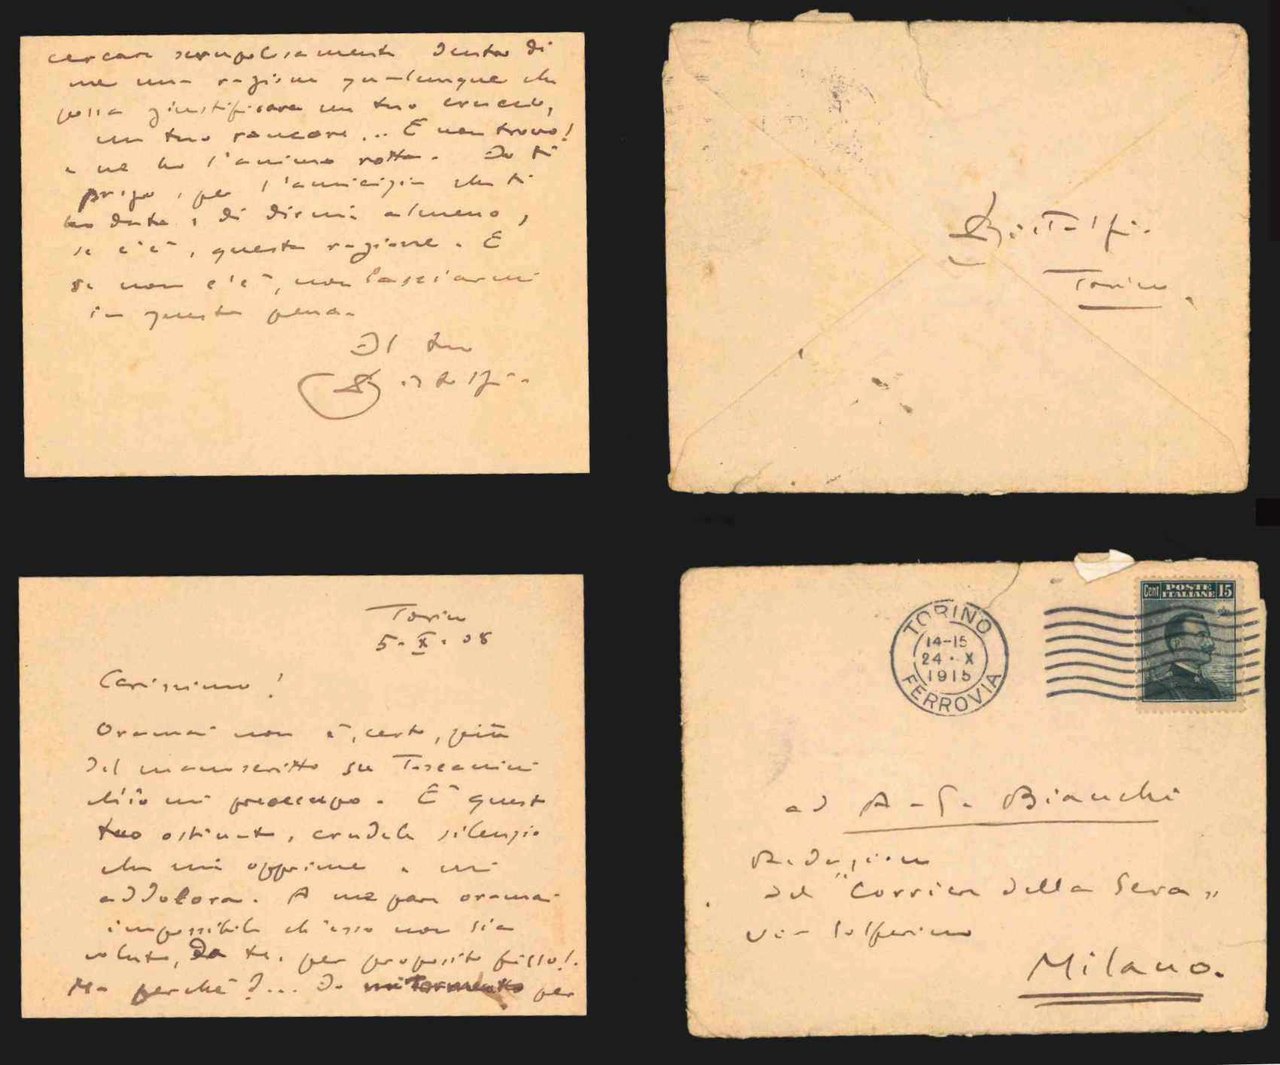 Torino
5-X-08
Carissimo!
Oramai non è, certo, più
del manoscritto su Toscanini
ch'io mi preoccupo. È questo
tuo ostinato, crudele silenzio
che mi opprime e mi
addolora. A me pare oramai
impossibile ch'esso non sia
voluto, da te, per proposito fisso!.
Ma perchè?... Io mi tormento per
cercare scrupolosamente dentro di
me una ragione qualunque che
possa giustificare un tuo cruccio,
un tuo rancore... E non trovo!
e ne ho l'animo rotto. Io ti
prego, per l'amicizia che ti
ho data, di dirmi almeno,
se c'è, questa ragione. E
se non c'è, non lasciarmi
in questa pena.
Il tuo
Bistolfi.
Bistolfi.
Torino.
TORINO
14-15
24·X
1915
FERROVIA
Cent POSTE ITALIANE 15
ad A-G- Bianchi
Redazione
del "Corriere della Sera"
via Solferino
Milano.